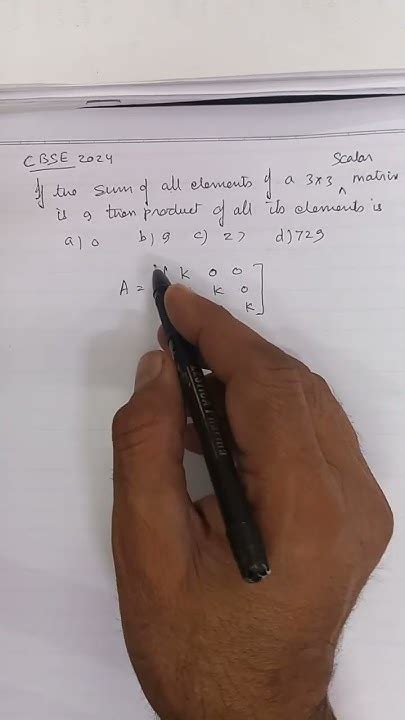 CBSE 2024
Scalar
If the sum of all elements of a 3x3 ^ matrix
is 9 then product of all its elements is
a) 0 b) 9 c) 27 d) 729
K 0 0
A = K 0
K